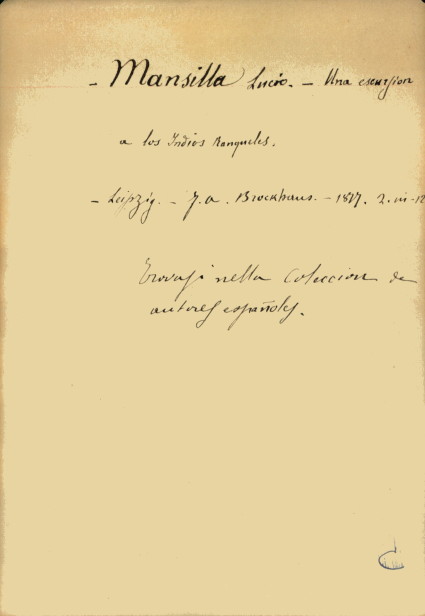 - Mansilla Lucio. - Una escursion
a los Indios Ranqueles.
- Leipzig. - F. A. Brockhaus. - 1877. 2. in-12
Trovasi nella Coleccion de
autores españoles.